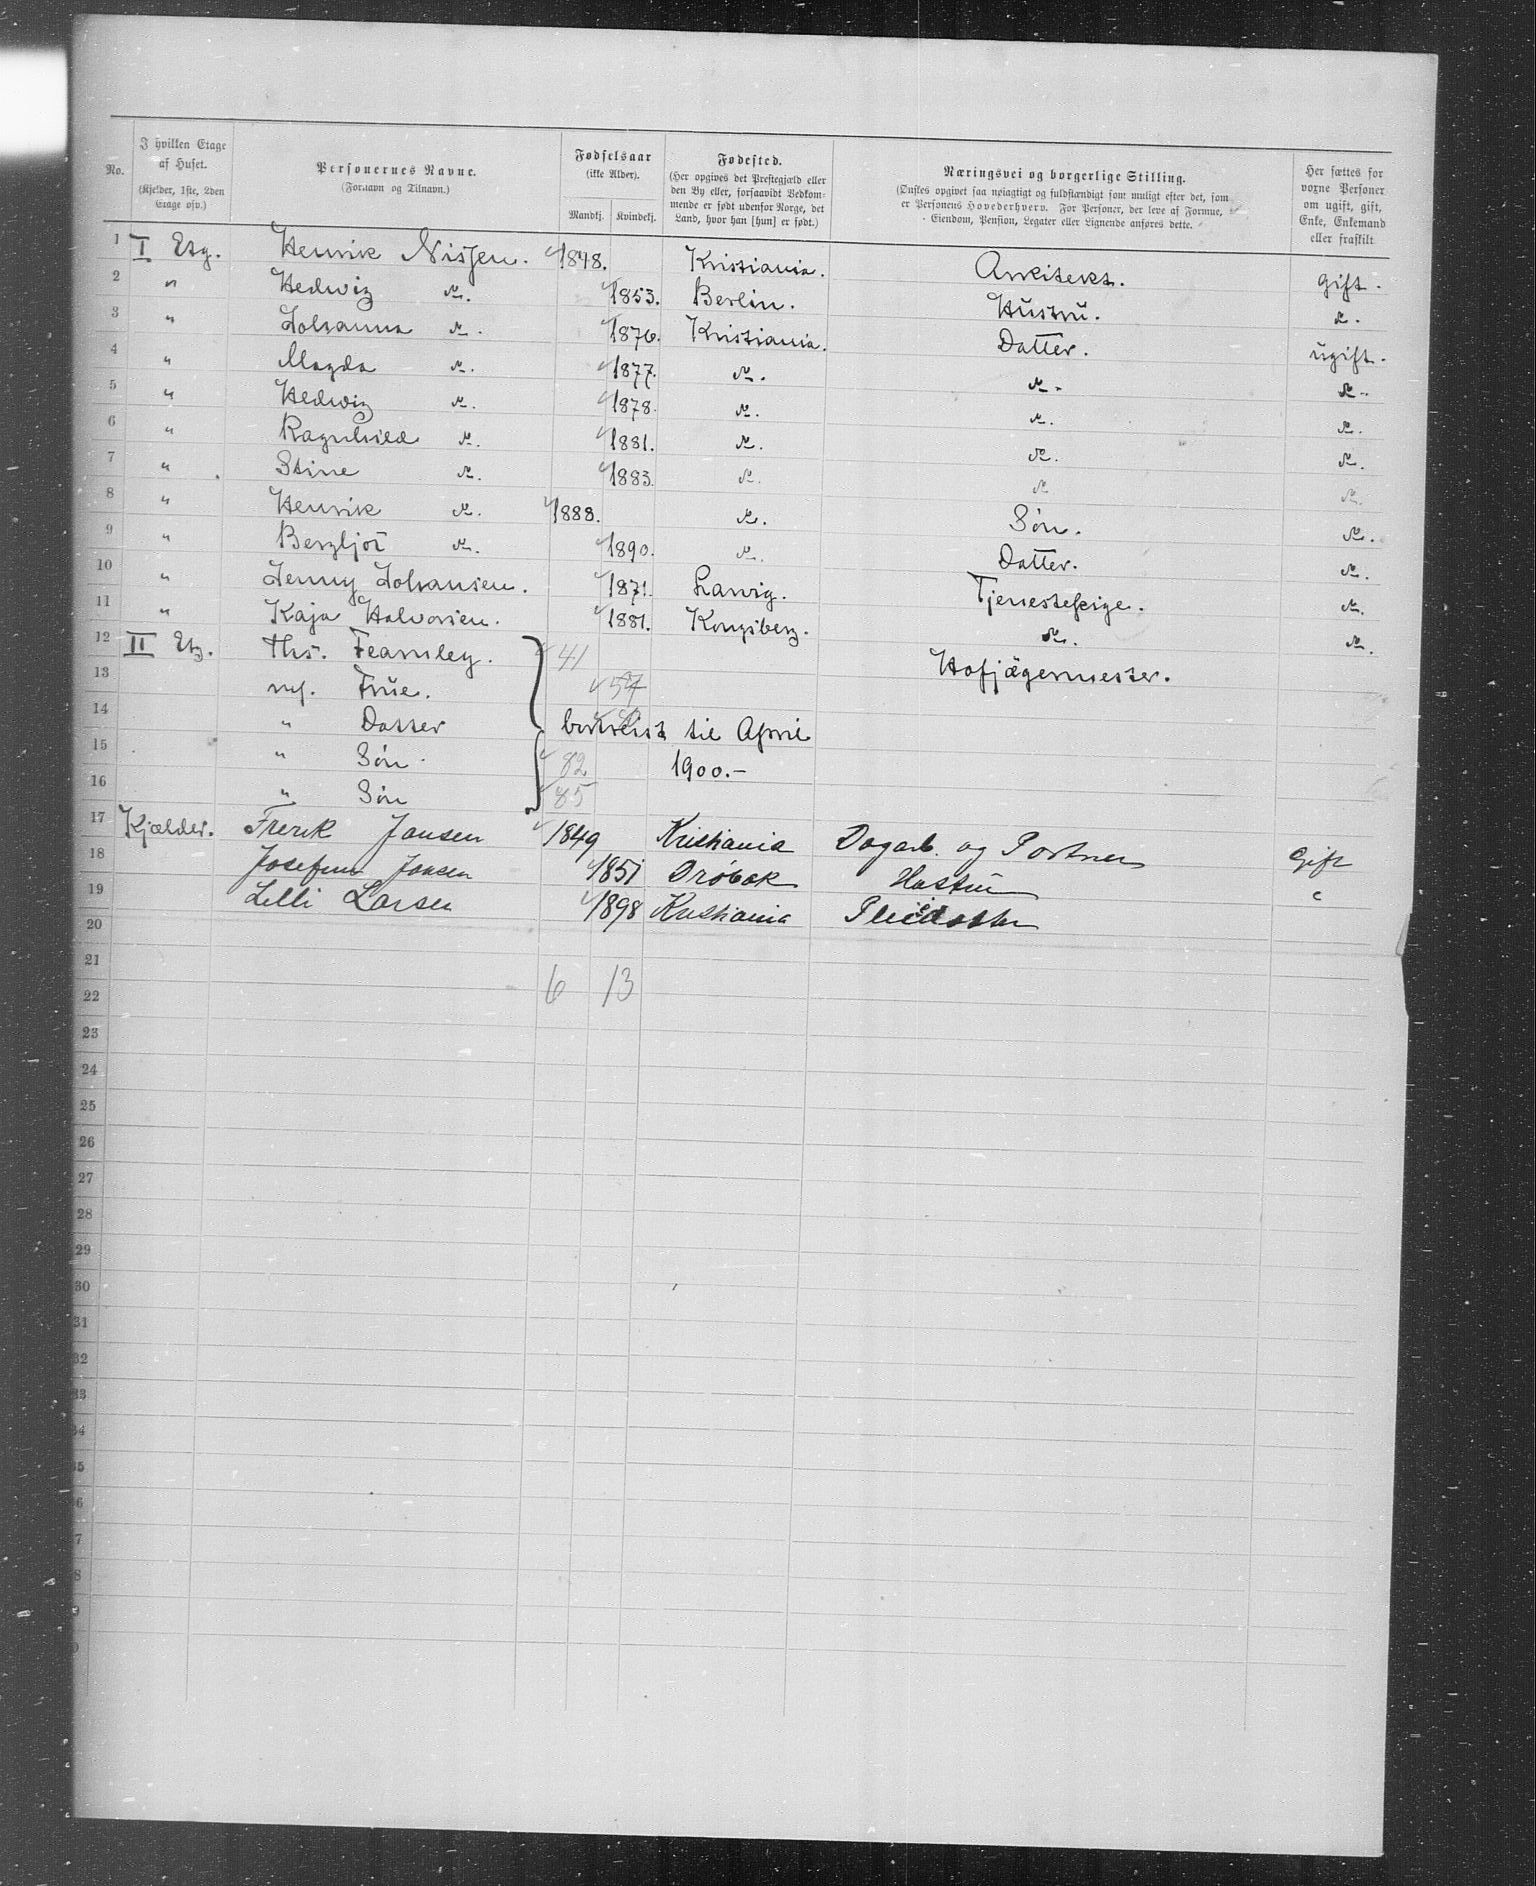 No. I hvilken Etage af Huset. (Kjelder, 1ste, 2den Etage osv.) Personernes Navne. (Fornavn og Tilnavn.) Fødselsaar (ikke Alder). Mandkj. Kvindekj. Fødested. (Her opgives det Prestegjæld eller den By eller, forsaavidt Vedkommende er født udenfor Norge, det Land, hvor han [hun] er født.) Næringsvei og borgerlige Stilling. (Ønskes opgivet saa nøiagtigt og fuldstændigt som muligt efter det, som er Personens Hovederhverv. For Personer, der leve af Formue, Eiendom, Pension, Legater eller Lignende anføres dette. Her sættes for voxne Personer om ugift, gift, Enke, Enkemand eller fraskilt
1 I Etg. Henrik Nissen. 1848. Kristiania. Arkitekt. gift.
2 " Hedwig do. 1853. Berlin. Hustru. do.
3 " Johanna do. 1876. Kristiania. Datter. ugift.
4 " Magda do. 1877. do. do. do.
5 " Hedwig do. 1878. do. do. do.
6 " Ragnhild do. 1881. do. do. do.
7 " Stine do. 1883. do. do do.
8 " Henrik do. 1888. do. Søn. do.
9 " Bergljot do. 1890. do. Datter. do.
10 " Jenny Johansen. 1871. Larvig. Tjenestepige. do.
11 " Kaja Halvorsen. 1881. Kongsberg. do. do.
12 II Etg. Ths. Fearnley. 41 Hofjägermester.
13 Frue. 57
14 " Datter bortreist til April
15 " Søn. 82 1900.-
16 " Søn 85
17 Kjælder. Frerik Jansen 1849 Kristiania Dagarb. og Portner Gift
18 Josefine Jansen 1851 Drøbak Hustru "
19 Lilli Larsen 1898 Kristiania Pleiedatter
20
21
22 6 13
23
24
25
26
27
28
29
30
31
32
33
34
35
6
7
8
9
0